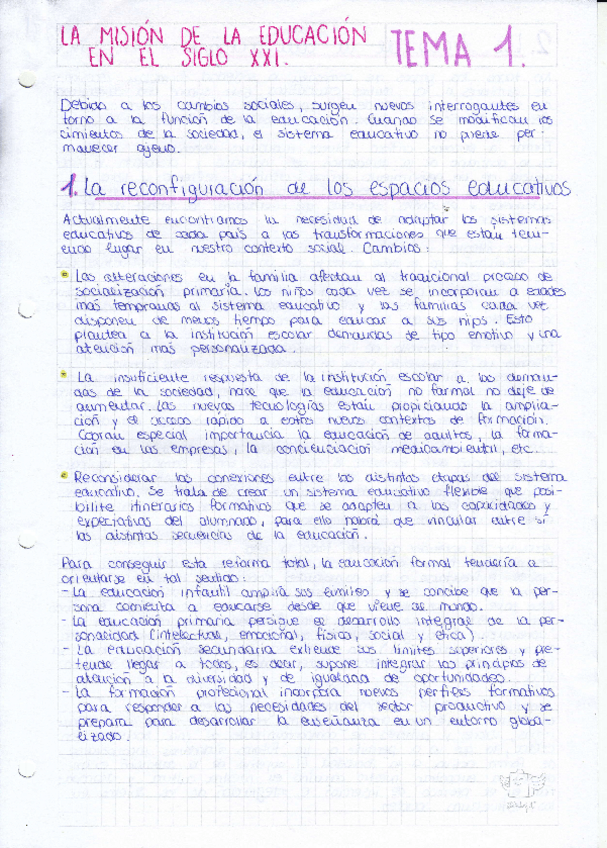 LA MISIÓN DE LA EDUCACIÓN
EN EL SIGLO XXI.
TEMA 1.
Debido a los cambios sociales, surgen nuevos interrogantes en
torno a la función de la educación. Cuando se modifican los
cimientos de la sociedad, el sistema educativo no puede per-
manecer ajeno.
1. La reconfiguración de los espacios educativos
Actualmente encontramos la necesidad de adaptar los sistemas
educativos de cada país a las transformaciones que están tenien-
endo lugar en nuestro contexto social. Cambios:
Las alteraciones en la familia afectan al tradicional proceso de
socialización primaria. Los niños cada vez se incorporan a edades
más tempranas al sistema educativo y las familias cada vez
disponen de menos tiempo para educar a sus hijos. Esto
plantea a la institución escolar demandas de tipo emotivo y una
atención más personalizada.
La insuficiente respuesta de la institución escolar a las deman-
das de la sociedad, hace que la educación no formal no deje de
aumentar. Las nuevas tecnologías están propiciando la amplia-
ción y el acceso rápido a estos nuevos contextos de formación.
Cobran especial importancia la educación de adultos, la forma-
ción en las empresas, la concienciación medioambiental, etc.
Reconsiderar las conexiones entre las distintas etapas del sistema
educativo. Se trata de crear un sistema educativo flexible que posi-
bilite itinerarios formativos que se adapten a las capacidades y
expectativas del alumnado, para ello habrá que vincular entre sí
las distintas secuencias de la educación.
Para conseguir esta reforma total, la educación formal tendería a
orientarse en tal sentido:
- La educación infantil amplía sus límites y se concibe que la per-
sona comienza a educarse desde que viene al mundo.
- La educación primaria persigue el desarrollo integral de la per-
sonalidad (intelectual, emocional, físico, social y ética).
- La educación secundaria extiende sus límites superiores y pre-
tende llegar a todos, es decir, supone integrar los principios de
atención a la diversidad y de igualdad de oportunidades.
- La formación profesional incorpora nuevos perfiles formativos
para responder a las necesidades del sector productivo y se
prepara para desarrollar la enseñanza en un entorno globa-
lizado.